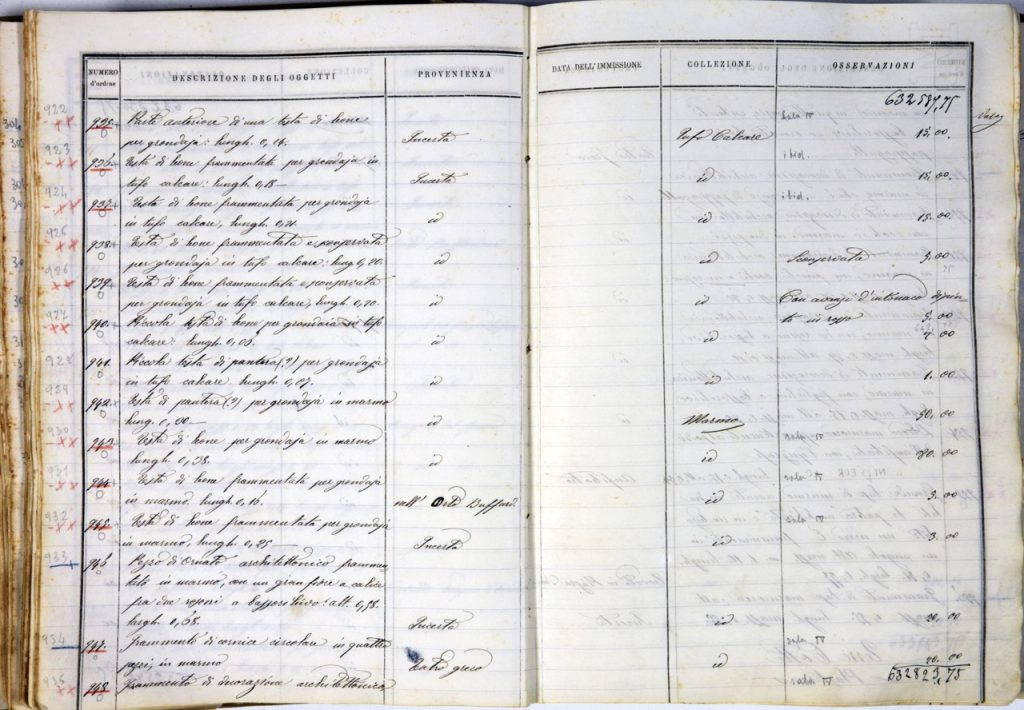 NUMERO
d'ordine
DESCRIZIONE DEGLI OGGETTI
PROVENIENZA
DATA DELL'IMMISSIONE
COLLEZIONE
OSSERVAZIONI
632587,75
922
935
Parte anteriore di una testa di leone
Sala IV
per grondaja: lungh. 0,14.
Incerta
Tufo Calcare
15,00.
923
936
Testa di leone frammentata per grondaja in
ibid.
tufo calcare: lungh. 0,18
Incerta
id
15,00.
924
937
Testa di leone frammentata per grondaja
ibid.
in tufo calcare, lungh. 0,21
id
id
15.00
925
938
Testa di leone frammentata e sconservata
per grondaja in tufo calcare: lung. 0,20.
id
id
Sconservata
5.00
926
939
Testa di leone frammentata e sconservata
per grondaja in tufo calcare, lungh. 0,20
id
id
Con avanzi d'intonaco dipin
to in rosso
5.00
927
940.
Piccola testa di leone per grondaia in tufo
calcare: lungh. 0,08.
id
id
4.00
928
941.
Piccola testa di pantera (?) per grondaja
in tufo calcare lungh. 0,07.
id
id
1.00
942.
Testa di pantera (?) per grondaja in marmo
lung. 0,30
id
Marmo
50.00
930
943
Testa di leone per grondaja in marmo
sala IV
lungh. 0,38.
id
id
80.00
931
944
Testa di leone frammentata per grondaja
sala IV
in marmo lungh. 0,16
nell' Orto Bufford.
id
3.00
932
945
Testa di leone frammentata per grondaja
sala IV
in marmo, lungh. 0,25
Incerta
id
3.00
933
946
Pezzo di ornato architettonico frammen
tato in marmo, con un gran fiore a calice
fra due rosoni a bassorilievo: alt. 0,58.
largh. 0,68.
Incerta
id
20,00
934
947.
Frammento di cornice circolare in quattro
sala IV
pezzi, in marmo
Teatro greco
id
20.00
632823,75
935
948
Frammento di decorazione architettonica,
sala IV